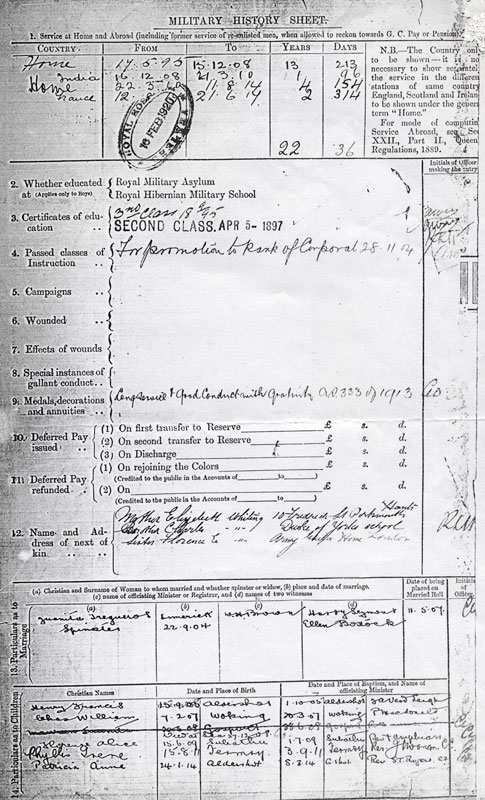 MILITARY HISTORY SHEET.
1. Service at Home and Abroad (including former service of re-enlisted men, when allowed to reckon towards G. C. Pay or Pension).
COUNTRY FROM TO YEARS DAYS
Home 17.5.95 15.12.08 13 213
India 16.12.08 21.3.10 1 96
Home 22.3.10 11.8.14 4 154
12. 21.6.17 2 314
22 36
16 FEB 1920
N.B.—The Country only
to be shown—it is no
necessary to show separately
the service in the differen
stations of same country
England, Scotland and Ireland
to be shown under the general
term "Home."
For mode of computing
Service Abroad, see Sec
XXII., Part II., Queen
Regulations, 1889.
Initials of Officer
making the entry.
2. Whether educated at (Applies only to Boys)
Royal Military Asylum
Royal Hibernian Military School
3. Certificates of education ..
3rd Class
SECOND CLASS. APR 5- 1897
4. Passed classes of Instruction ..
For promotion to Rank of Corporal 28.11.04
5. Campaigns ..
6. Wounded ..
7. Effects of wounds
8. Special instances of gallant conduct ..
9. Medals, decorations and annuities ..
Long Service & Good Conduct with Gratuity AO 333 of 1913
10. Deferred Pay issued ..
(1) On first transfer to Reserve £ s. d.
(2) On second transfer to Reserve £ s. d.
(3) On Discharge £ s. d.
11. Deferred Pay refunded ..
(1) On rejoining the Colors £ s. d.
(Credited to the public in the Accounts of to )
(2) On £ s. d.
(Credited to the public in the Accounts of to )
12. Name and Address of next of kin ..
Mother Elizabeth Whiting 10 Frederick St Portsmouth Hants
Brother Charlie " " Duke of Yorks School
Sister Florence E " " Army Home London
13. Particulars as to Marriage
(a) Christian and Surname of Woman to whom married and whether spinster or widow, (b) place and date of marriage.
(c) name of officiating Minister or Registrar, and (d) names of two witnesses
Date of being placed on Married Roll
Initials of Officer
(a) (b) (c) (d)
Juanita Limerick W.H. Brown Harry Seymour 11.5.07
Spinster 22.9.04 Ellen
14. Particulars as to Children
Christian Names Date and Place of Birth Date and Place of Baptism, and Name of officiating Minister
Henry Francis 15.9.05 Aldershot 1.10.05 Aldershot
William 7.2.07 Woking 20.3.07 Woking
Alice 15.6.09 Subathu 1.7.09 Subathu
Phyllis Irene 15.8.11 Fermoy 3.9.11 Fermoy Rev
Patricia Anne 24.1.14 Aldershot 8.2.14 A'shot Rev